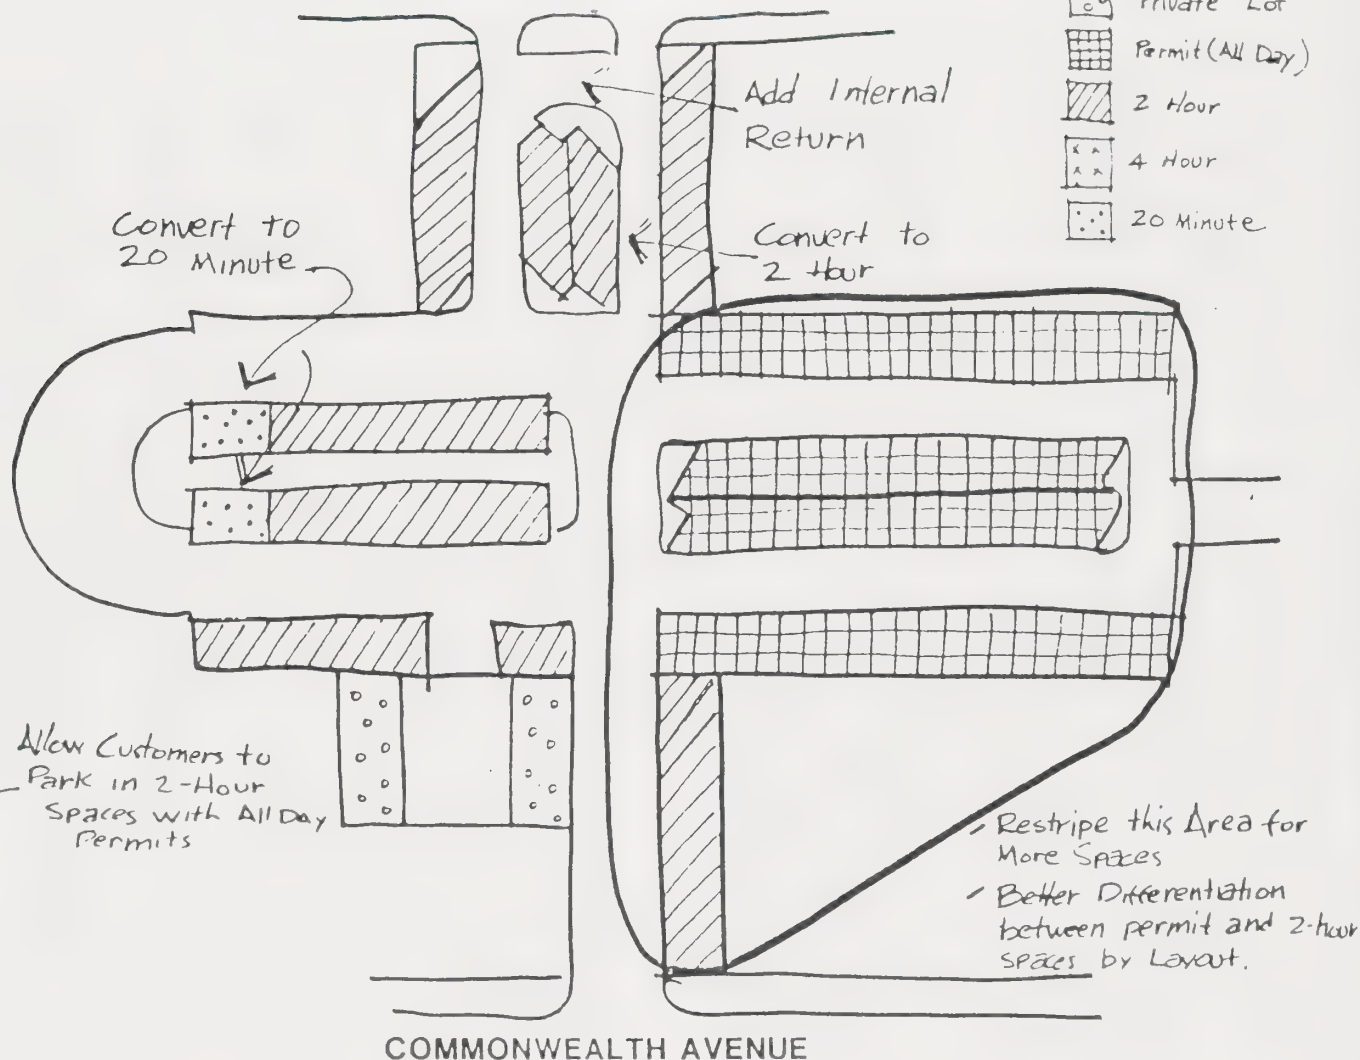 Private Lot
Permit (All Day)
2 Hour
4 Hour
20 Minute
Add Internal
Return
Convert to
20 Minute
Convert to
2 Hour
Allow Customers to
Park in 2-Hour
Spaces with All Day
Permits
Restripe this Area for
More Spaces
Better Differentiation
between permit and 2-hour
spaces by Layout.
COMMONWEALTH AVENUE